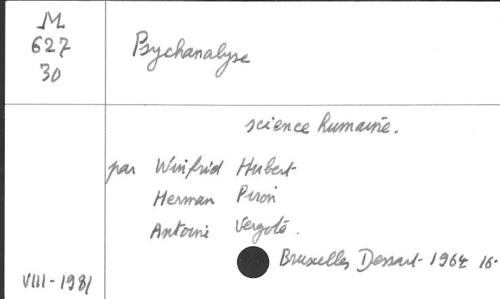 M
627
30
Psychanalyse
science humaine.
par Winfrid Hubert
Herman Piron
Antoine Vergote.
Bruxelles Dessart 1964 16.
VIII-1981